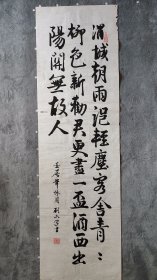 渭城朝雨浥輕塵客舍青々
柳色新勸君更盡一盃酒西出
陽關無故人